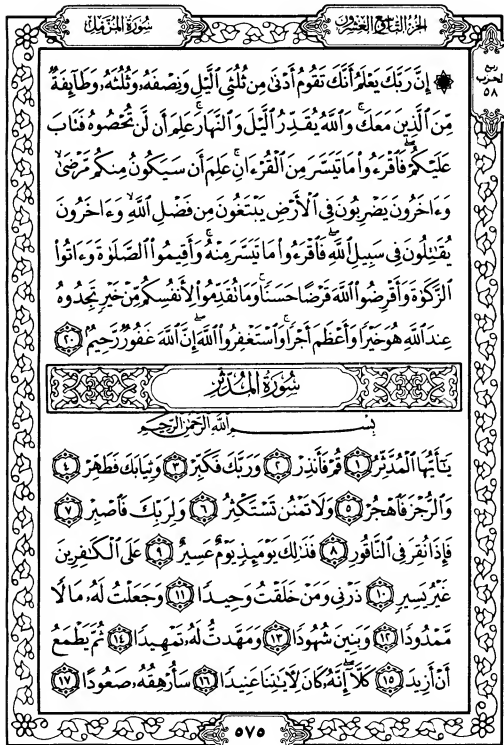 سُورَةُ المُزَّمِّل
الجُزْءُ التَّاسِعُ وَالعِشْرُونَ
رُبع
الحزب
٥٨
۞ إِنَّ رَبَّكَ يَعْلَمُ أَنَّكَ تَقُومُ أَدْنَىٰ مِن ثُلُثَيِ ٱلَّيْلِ وَنِصْفَهُۥ وَثُلُثَهُۥ وَطَآئِفَةٌ
مِّنَ ٱلَّذِينَ مَعَكَۚ وَٱللَّهُ يُقَدِّرُ ٱلَّيْلَ وَٱلنَّهَارَۚ عَلِمَ أَن لَّن تُحْصُوهُ فَتَابَ
عَلَيْكُمْۖ فَٱقْرَءُوا۟ مَا تَيَسَّرَ مِنَ ٱلْقُرْءَانِۚ عَلِمَ أَن سَيَكُونُ مِنكُم مَّرْضَىٰ
وَءَاخَرُونَ يَضْرِبُونَ فِي ٱلْأَرْضِ يَبْتَغُونَ مِن فَضْلِ ٱللَّهِۙ وَءَاخَرُونَ
يُقَٰتِلُونَ فِي سَبِيلِ ٱللَّهِۖ فَٱقْرَءُوا۟ مَا تَيَسَّرَ مِنْهُۚ وَأَقِيمُوا۟ ٱلصَّلَوٰةَ وَءَاتُوا۟
ٱلزَّكَوٰةَ وَأَقْرِضُوا۟ ٱللَّهَ قَرْضًا حَسَنًاۚ وَمَا تُقَدِّمُوا۟ لِأَنفُسِكُم مِّنْ خَيْرٍ تَجِدُوهُ
عِندَ ٱللَّهِ هُوَ خَيْرًا وَأَعْظَمَ أَجْرًاۚ وَٱسْتَغْفِرُوا۟ ٱللَّهَۖ إِنَّ ٱللَّهَ غَفُورٌ رَّحِيمٌۢ ٢٠
سُورَةُ المُدَّثِّر
بِسْمِ ٱللَّهِ ٱلرَّحْمَٰنِ ٱلرَّحِيمِ
يَٰٓأَيُّهَا ٱلْمُدَّثِّرُ ١ قُمْ فَأَنذِرْ ٢ وَرَبَّكَ فَكَبِّرْ ٣ وَثِيَابَكَ فَطَهِّرْ ٤
وَٱلرُّجْزَ فَٱهْجُرْ ٥ وَلَا تَمْنُن تَسْتَكْثِرُ ٦ وَلِرَبِّكَ فَٱصْبِرْ ٧
فَإِذَا نُقِرَ فِي ٱلنَّاقُورِ ٨ فَذَٰلِكَ يَوْمَئِذٍ يَوْمٌ عَسِيرٌ ٩ عَلَى ٱلْكَٰفِرِينَ
غَيْرُ يَسِيرٍ ١٠ ذَرْنِي وَمَنْ خَلَقْتُ وَحِيدًا ١١ وَجَعَلْتُ لَهُۥ مَالًا
مَّمْدُودًا ١٢ وَبَنِينَ شُهُودًا ١٣ وَمَهَّدتُّ لَهُۥ تَمْهِيدًا ١٤ ثُمَّ يَطْمَعُ
أَنْ أَزِيدَ ١٥ كَلَّآۖ إِنَّهُۥ كَانَ لِأَيَٰتِنَا عَنِيدًا ١٦ سَأُرْهِقُهُۥ صَعُودًا ١٧
٥٧٥